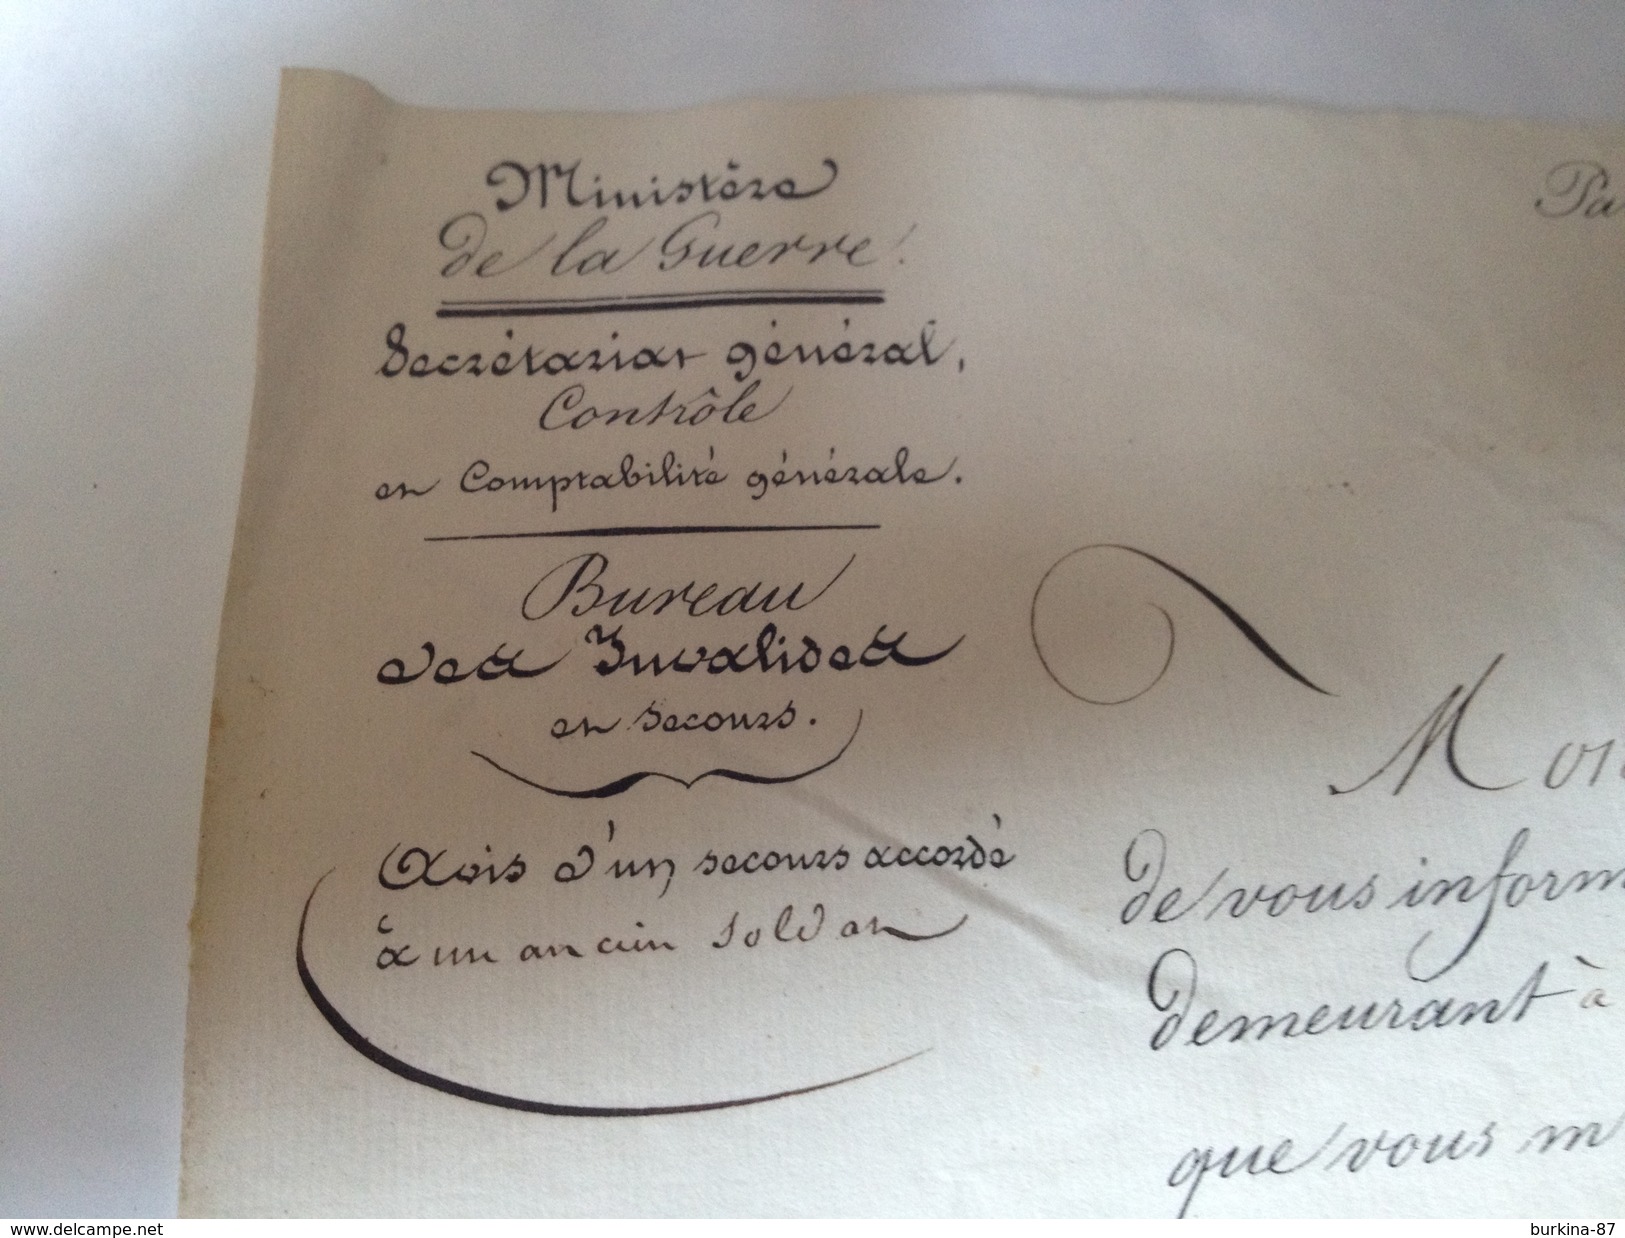 Ministère
de la Guerre.
Secrétariat général,
Contrôle
et Comptabilité générale.
Bureau
des Invalides
et secours.
Avis d'un secours accordé
à un ancien soldat
Pa
Mon
de vous inform
demeurant à
que vous m
www.delcampe.net
burkina-87